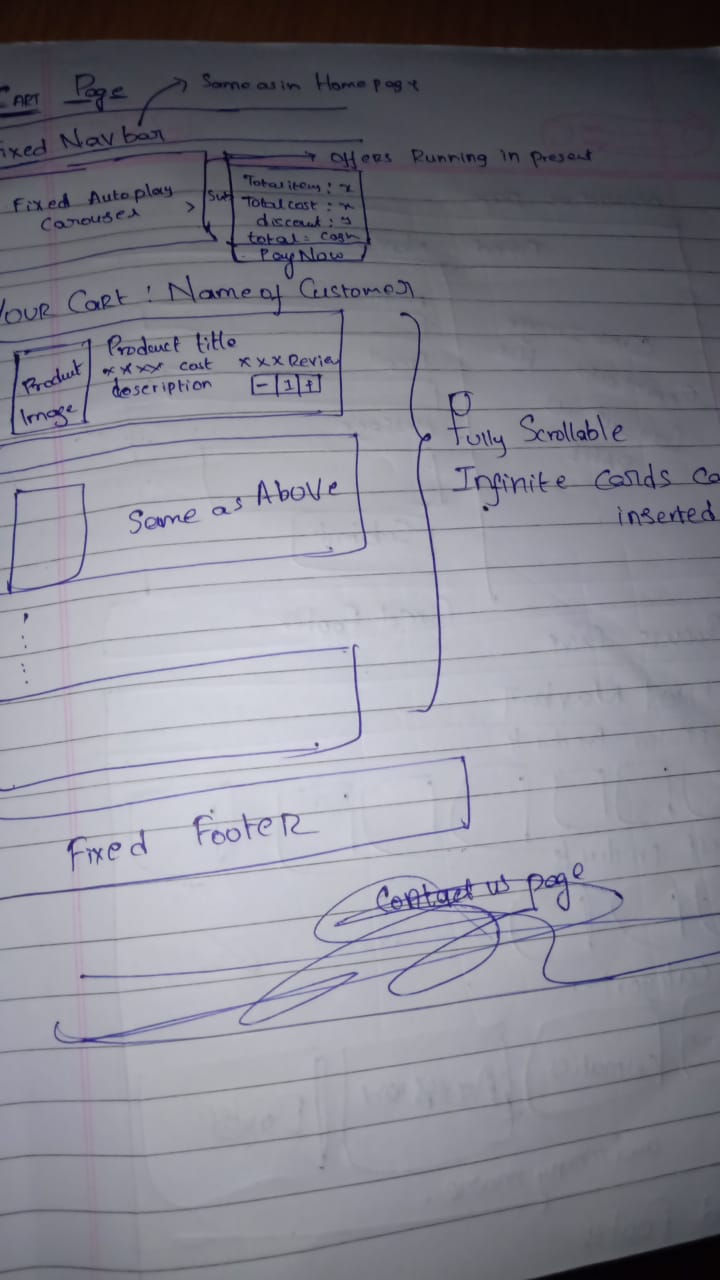 CART Page → Same as in Home page
Fixed Navbar
→ Offers Running in present
Fixed Autoplay
Carousel >
Total item : x
Total cost : x
discount : y
total = Cash
Pay Now
Your Cart : Name of Customer
Product
Image
Product title
xxxx cost xxx Review
description - 1 +
Same as Above
Fully Scrollable
Infinite Cards
inserted
Fixed Footer
Contact us page